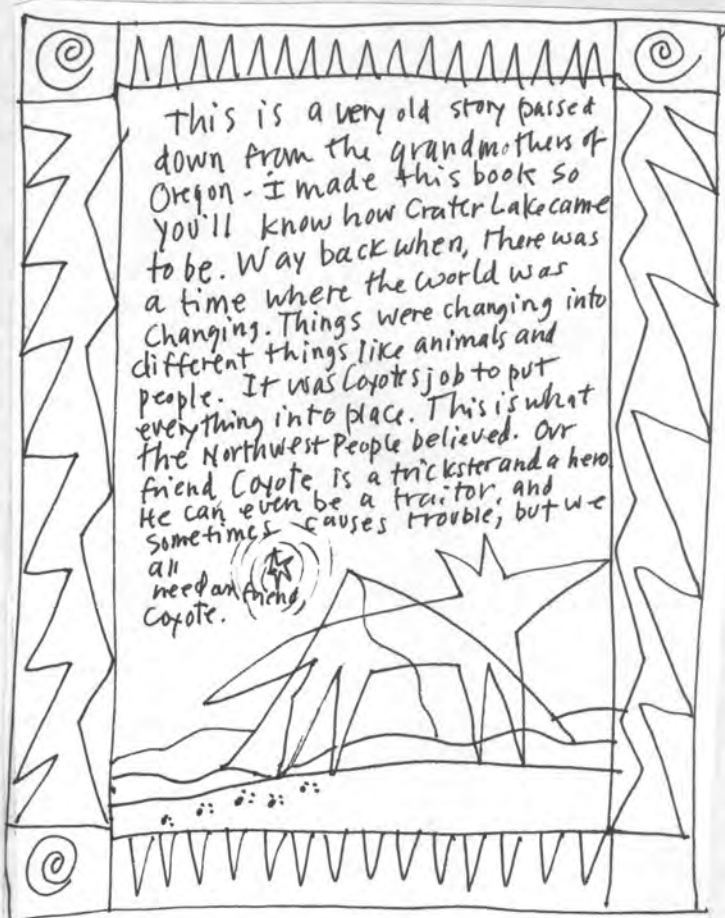 This is a very old story passed
down from the grandmothers of
Oregon - I made this book so
you'll know how Crater Lake came
to be. Way back when, there was
a time where the world was
Changing. Things were changing into
different things like animals and
people. It was Coyotes job to put
everything into place. This is what
the Northwest People believed. Our
friend Coyote is a trickster and a hero
He can even be a traitor, and
sometimes causes trouble, but we
all
need our friend
Coyote.